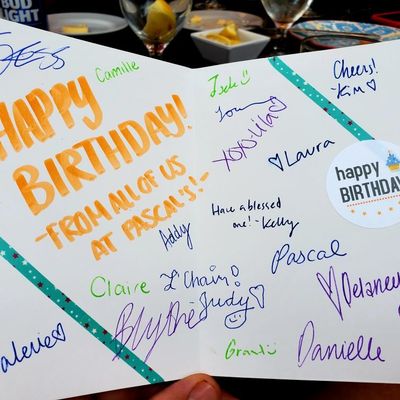 BUD LIGHT
Jess
Camille
HAPPY
BIRTHDAY!
-FROM ALL OF US
AT PASCAL'S!-
Addy
Claire
L'Chaim!
Judy
Blythe
Valerie
Jack
XOXO-Lila
Cheers!
-Kim
Laura
happy
BIRTHDAY
Have a blessed
me! -Kelly
Pascal
Delaney
Grant
Danielle